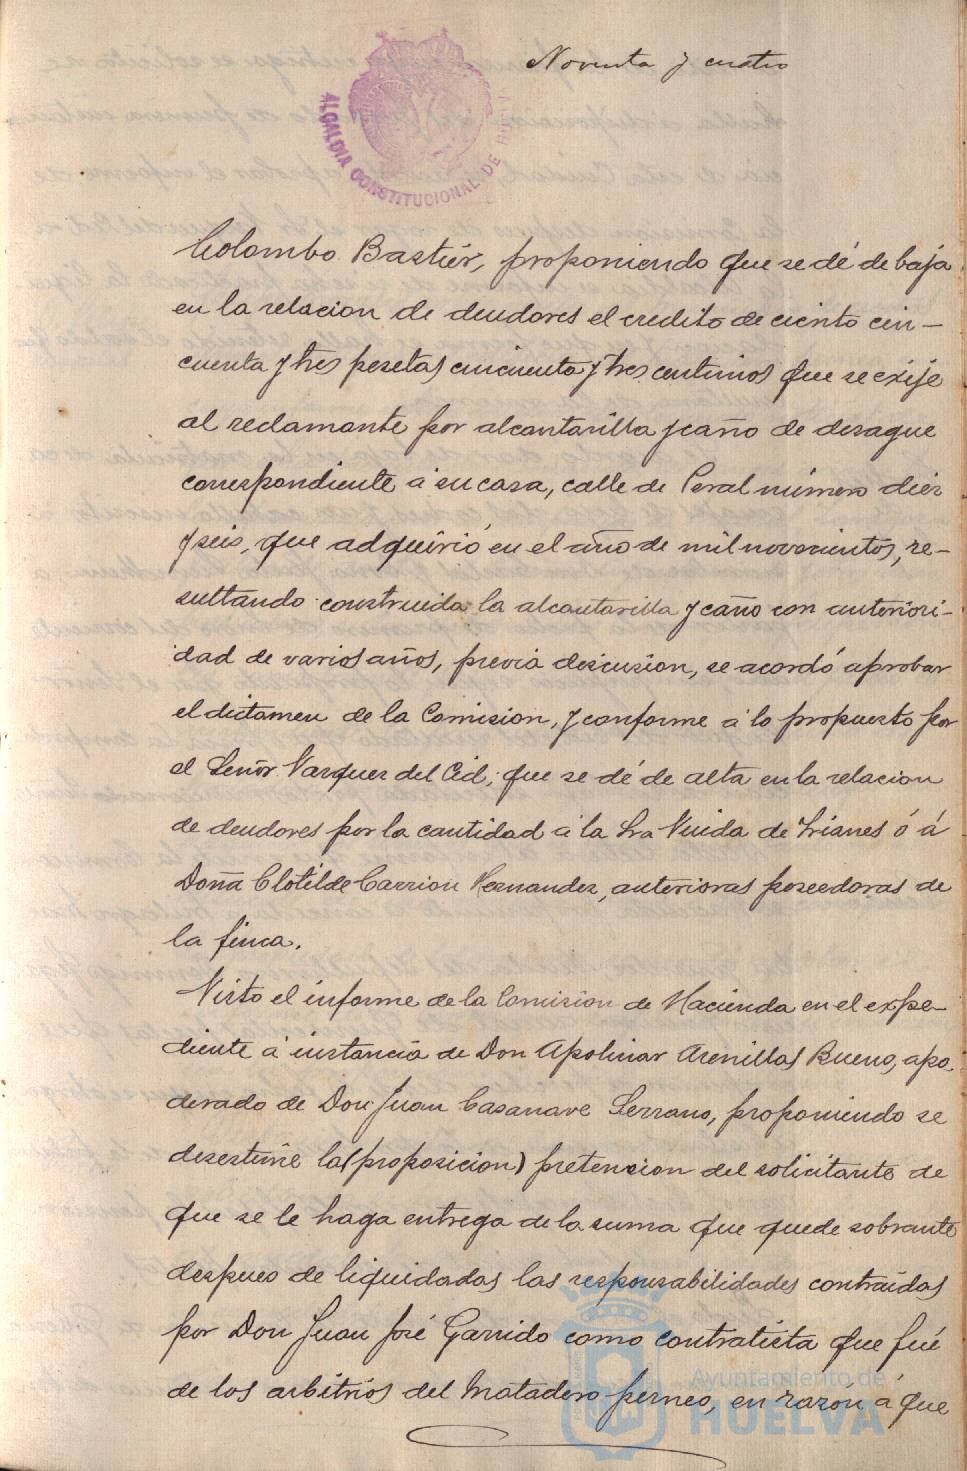 Noventa y cuatro
ALCALDIA CONSTITUCIONAL DE
Colombo Bastiér, proponiendo que se dé de baja
en la relacion de deudores el credito de ciento cin–
cuenta y tres pesetas cincuenta y tres centimos que se exije
al reclamante por alcantarilla y caño de desague
correspondiente á su casa, calle de Peral número diez
y seis, que adquirió en el año de mil novecientos, re–
sultando construida la alcantarilla y caño con anteriori–
dad de varios años, previa discusion, se acordó aprobar
el dictamen de la Comision, y conforme á lo propuesto por
el Señor Vazquez del Cid, que se dé de alta en la relacion
de deudores por la cantidad á la Sra Viuda de Trianes ó á
Doña Clotilde Carrion Hernandez, anteriores poseedoras de
la finca.
Visto el informe de la Comision de Hacienda en el expe–
diente á instancia de Don Apolinar Arenillas Bueno, apo–
derado de Don Juan Casanave Serrano, proponiendo se
desestime la (proposicion) pretension del solicitante de
que se le haga entrega de la suma que quede sobrante
despues de liquidadas las responsabilidades contraidas
por Don Juan José Garrido como contratista que fué
de los arbitrios del Matadero perneo, en razón á que
Ayuntamiento de
HUELVA